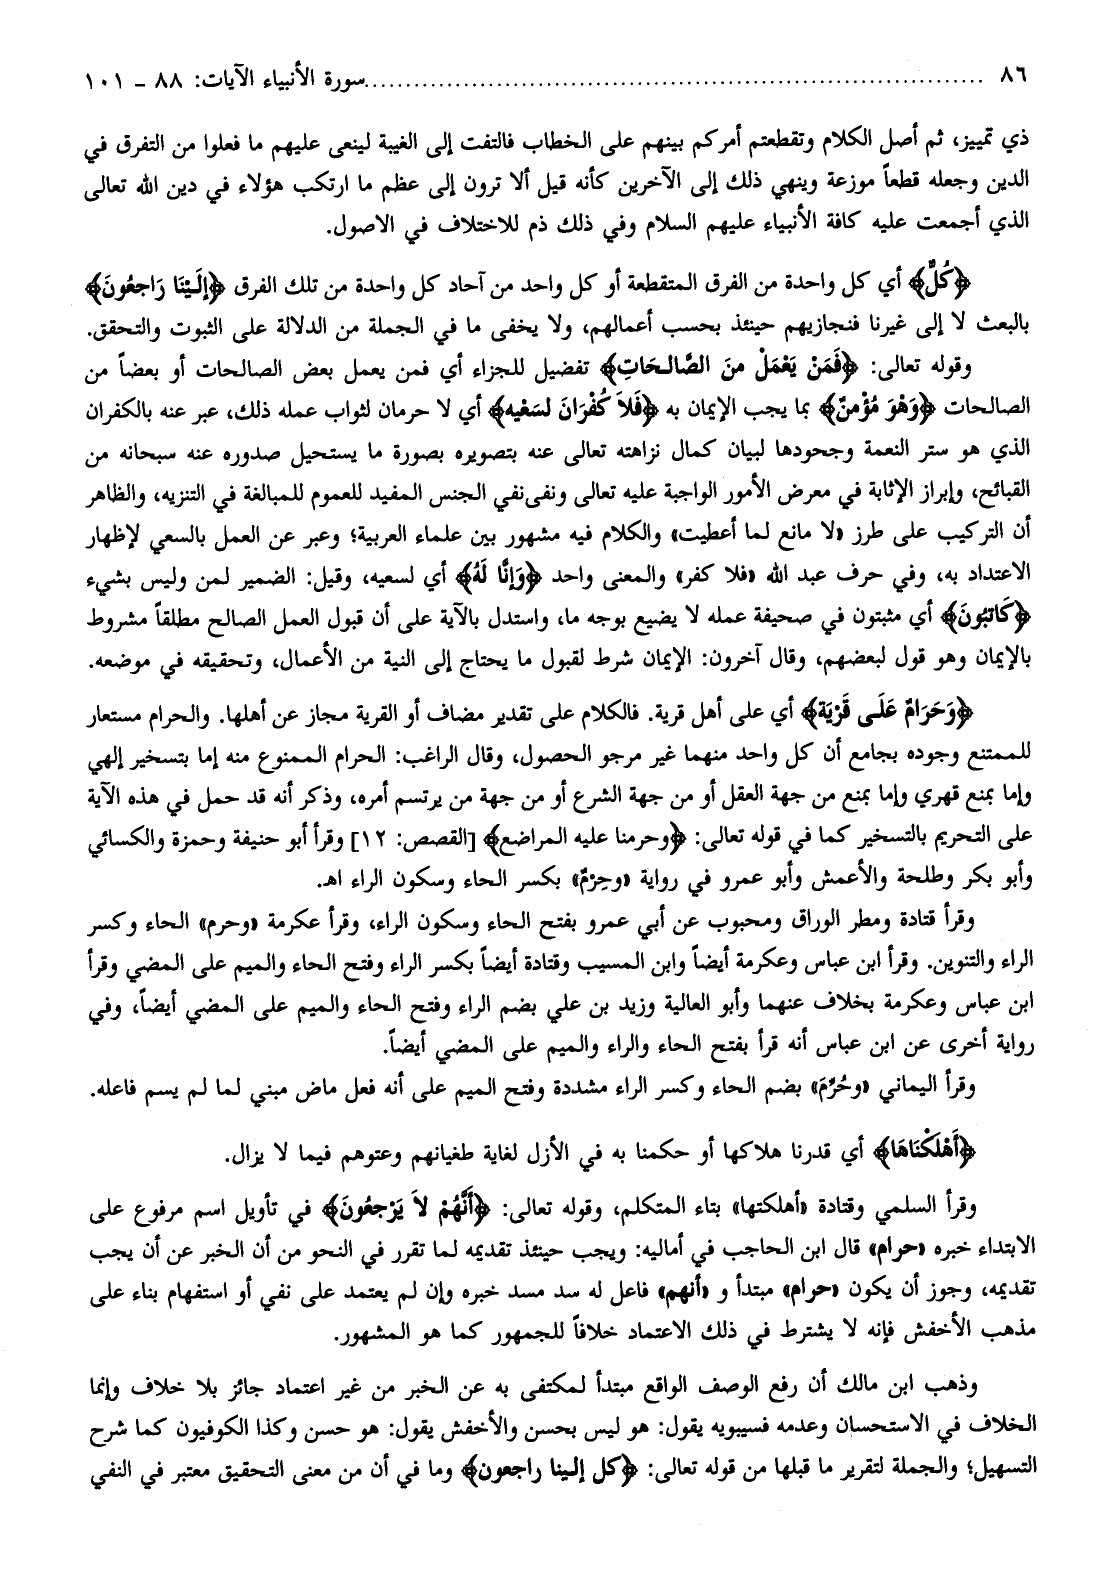 ٨٦ ........................................................................ سورة الأنبياء الآيات: ٨٨ - ١٠١
ذي تمييز، ثم أصل الكلام وتقطعتم أمركم بينهم على الخطاب فالتفت إلى الغيبة لينعى عليهم ما فعلوا من التفرق في
الدين وجعله قطعاً موزعة وينهي ذلك إلى الآخرين كأنه قيل ألا ترون إلى عظم ما ارتكب هؤلاء في دين الله تعالى
الذي أجمعت عليه كافة الأنبياء عليهم السلام وفي ذلك ذم للاختلاف في الاصول.
﴿كُلٌّ﴾ أي كل واحدة من الفرق المتقطعة أو كل واحد من آحاد كل واحدة من تلك الفرق ﴿إلَيْنَا رَاجعُونَ﴾
بالبعث لا إلى غيرنا فنجازيهم حينئذ بحسب أعمالهم، ولا يخفى ما في الجملة من الدلالة على الثبوت والتحقق.
وقوله تعالى: ﴿فَمَنْ يَعْمَلْ منَ الصَّالحَاتِ﴾ تفضيل للجزاء أي فمن يعمل بعض الصالحات أو بعضاً من
الصالحات ﴿وَهوَ مُؤْمنٌ﴾ بما يجب الإيمان به ﴿فَلاَ كُفْرَانَ لسَعْيه﴾ أي لا حرمان لثواب عمله ذلك، عبر عنه بالكفران
الذي هو ستر النعمة وجحودها لبيان كمال نزاهته تعالى عنه بتصويره بصورة ما يستحيل صدوره عنه سبحانه من
القبائح، وإبراز الإثابة في معرض الأمور الواجبة عليه تعالى ونفى‌نفي الجنس المفيد للعموم للمبالغة في التنزيه، والظاهر
أن التركيب على طرز «لا مانع لما أعطيت» والكلام فيه مشهور بين علماء العربية؛ وعبر عن العمل بالسعي لإظهار
الاعتداد به، وفي حرف عبد الله «فلا كفر» والمعنى واحد ﴿وَإنَّا لَهُ﴾ أي لسعيه، وقيل: الضمير لمن وليس بشيء
﴿كَاتبُونَ﴾ أي مثبتون في صحيفة عمله لا يضيع بوجه ما، واستدل بالآية على أن قبول العمل الصالح مطلقاً مشروط
بالإيمان وهو قول لبعضهم، وقال آخرون: الإيمان شرط لقبول ما يحتاج إلى النية من الأعمال، وتحقيقه في موضعه.
﴿وَحَرَامٌ عَلَى قَرْيَة﴾ أي على أهل قرية. فالكلام على تقدير مضاف أو القرية مجاز عن أهلها. والحرام مستعار
للممتنع وجوده بجامع أن كل واحد منهما غير مرجو الحصول، وقال الراغب: الحرام الممنوع منه إما بتسخير إلهي
وإما بمنع قهري وإما بمنع من جهة العقل أو من جهة الشرع أو من جهة من يرتسم أمره، وذكر أنه قد حمل في هذه الآية
على التحريم بالتسخير كما في قوله تعالى: ﴿وحرمنا عليه المراضع﴾ [القصص: ١٢] وقرأ أبو حنيفة وحمزة والكسائي
وأبو بكر وطلحة والأعمش وأبو عمرو في رواية «وحِرْمٌ» بكسر الحاء وسكون الراء اهـ.
وقرأ قتادة ومطر الوراق ومحبوب عن أبي عمرو بفتح الحاء وسكون الراء، وقرأ عكرمة «وحرم» الحاء وكسر
الراء والتنوين. وقرأ ابن عباس وعكرمة أيضاً وابن المسيب وقتادة أيضاً بكسر الراء وفتح الحاء والميم على المضي وقرأ
ابن عباس وعكرمة بخلاف عنهما وأبو العالية وزيد بن علي بضم الراء وفتح الحاء والميم على المضي أيضاً، وفي
رواية أخرى عن ابن عباس أنه قرأ بفتح الحاء والراء والميم على المضي أيضاً.
وقرأ اليماني «وحُرِّمَ» بضم الحاء وكسر الراء مشددة وفتح الميم على أنه فعل ماض مبني لما لم يسم فاعله.
﴿أَهْلَكْنَاهَا﴾ أي قدرنا هلاكها أو حكمنا به في الأزل لغاية طغيانهم وعتوهم فيما لا يزال.
وقرأ السلمي وقتادة «أهلكتها» بتاء المتكلم، وقوله تعالى: ﴿أَنَّهُمْ لاَ يَرْجعُونَ﴾ في تأويل اسم مرفوع على
الابتداء خبره «حرام» قال ابن الحاجب في أماليه: ويجب حينئذ تقديمه لما تقرر في النحو من أن الخبر عن أن يجب
تقديمه، وجوز أن يكون «حرام» مبتدأ و «أنهم» فاعل له سد مسد خبره وإن لم يعتمد على نفي أو استفهام بناء على
مذهب الأخفش فإنه لا يشترط في ذلك الاعتماد خلافاً للجمهور كما هو المشهور.
وذهب ابن مالك أن رفع الوصف الواقع مبتدأ لمكتفى به عن الخبر من غير اعتماد جائز بلا خلاف وإنما
الخلاف في الاستحسان وعدمه فسيبويه يقول: هو ليس بحسن والأخفش يقول: هو حسن وكذا الكوفيون كما شرح
التسهيل؛ والجملة لتقرير ما قبلها من قوله تعالى: ﴿كل إلينا راجعون﴾ وما في أن من معنى التحقيق معتبر في النفي